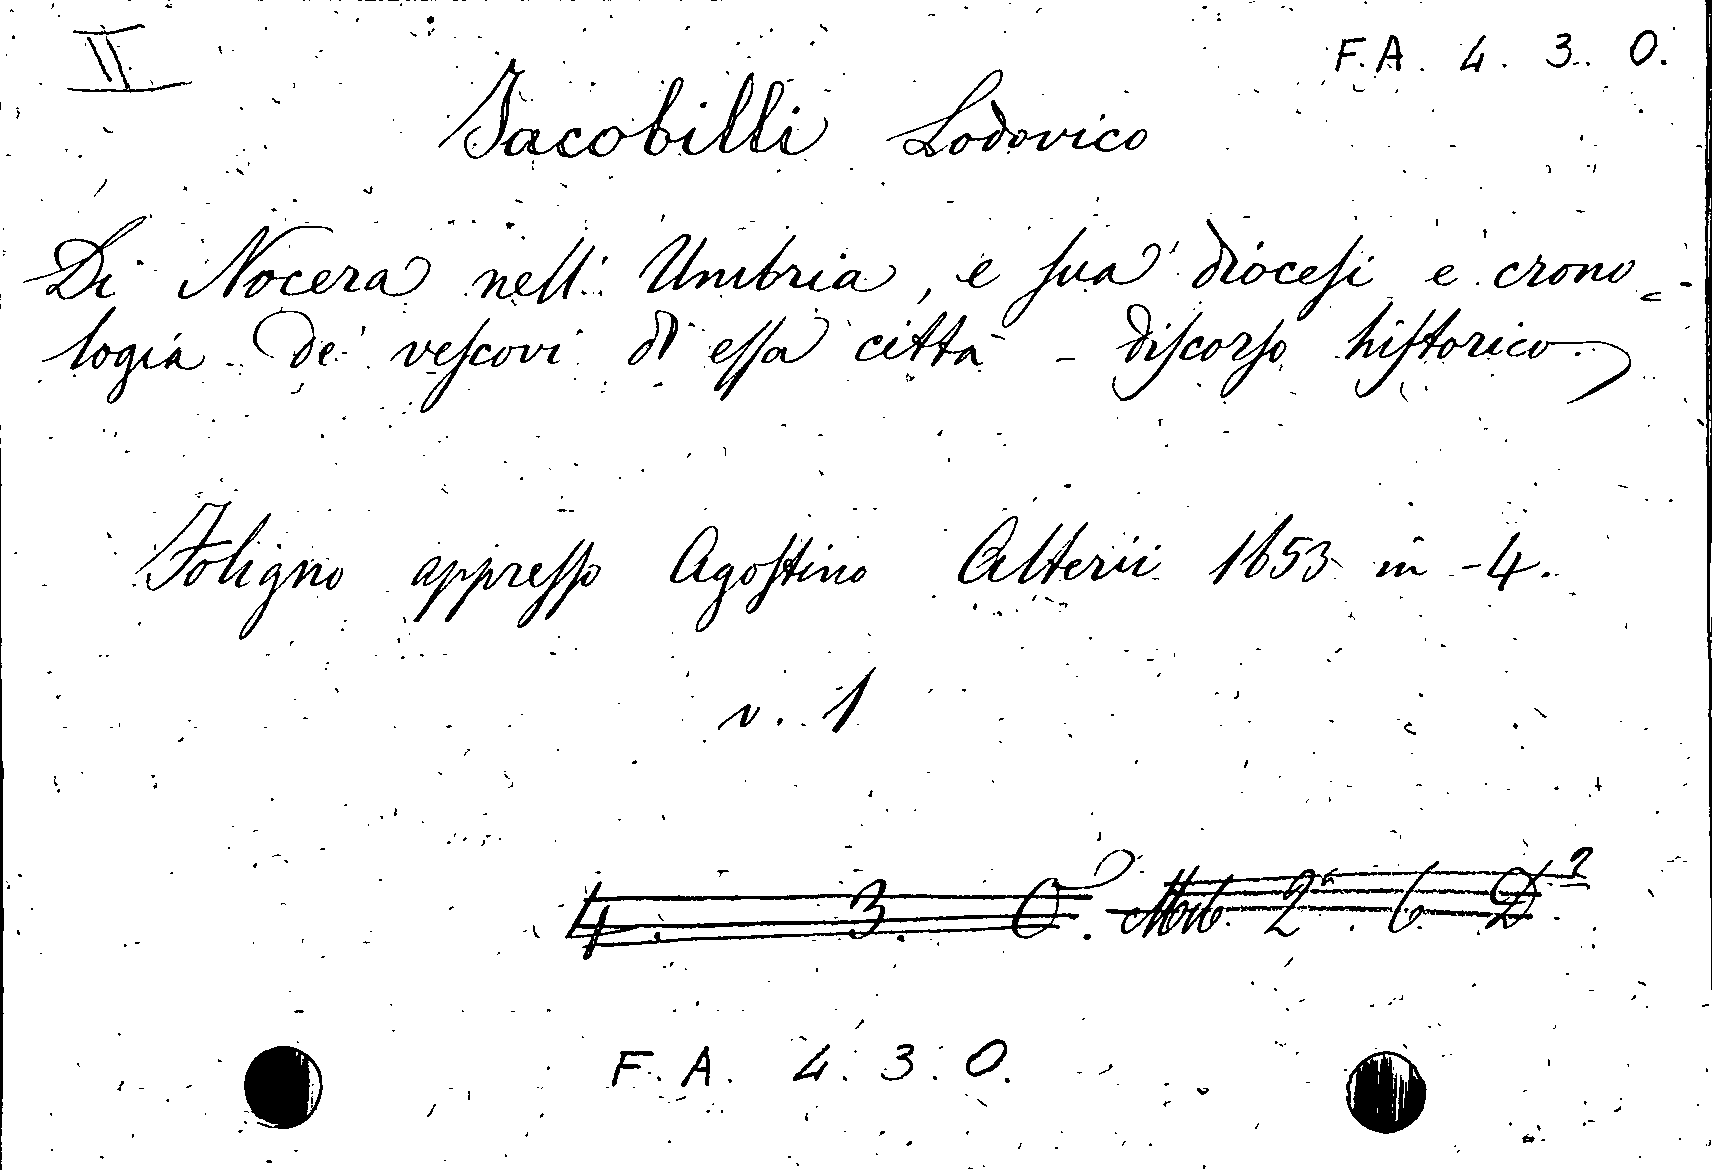 II
F. A. 4. 3. O.
Jacobilli Lodovico
Di Nocera nell' Umbria, e sua diocesi e crono=
logia de' vescovi di essa città - discorso historico.
Foligno appresso Agostino Alterii 1653 in -4.
v. 1
4. 3. O. 2ª. 6. D
F. A. 4. 3. O.